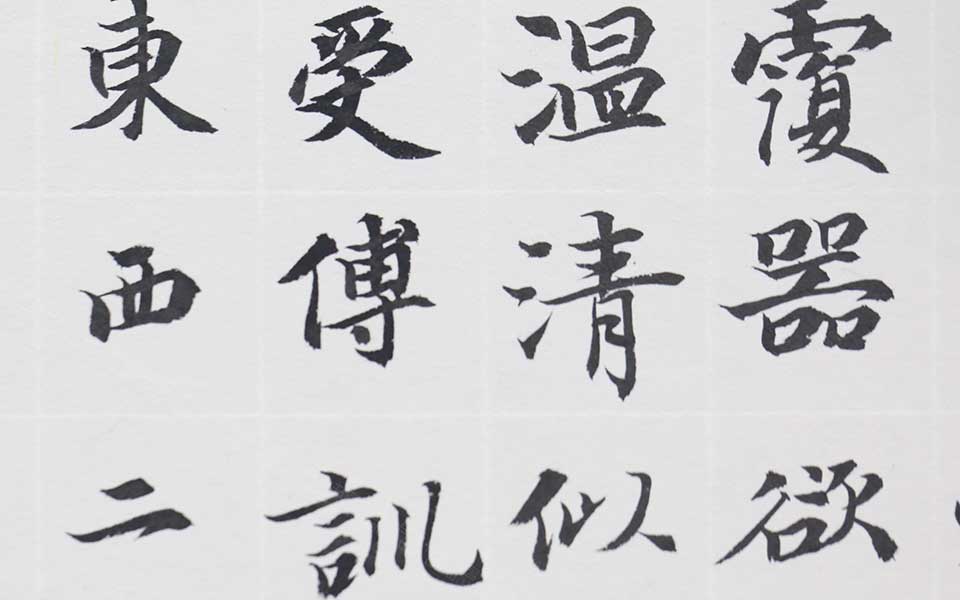 覆器欲
温清似
受傅訓
東西二